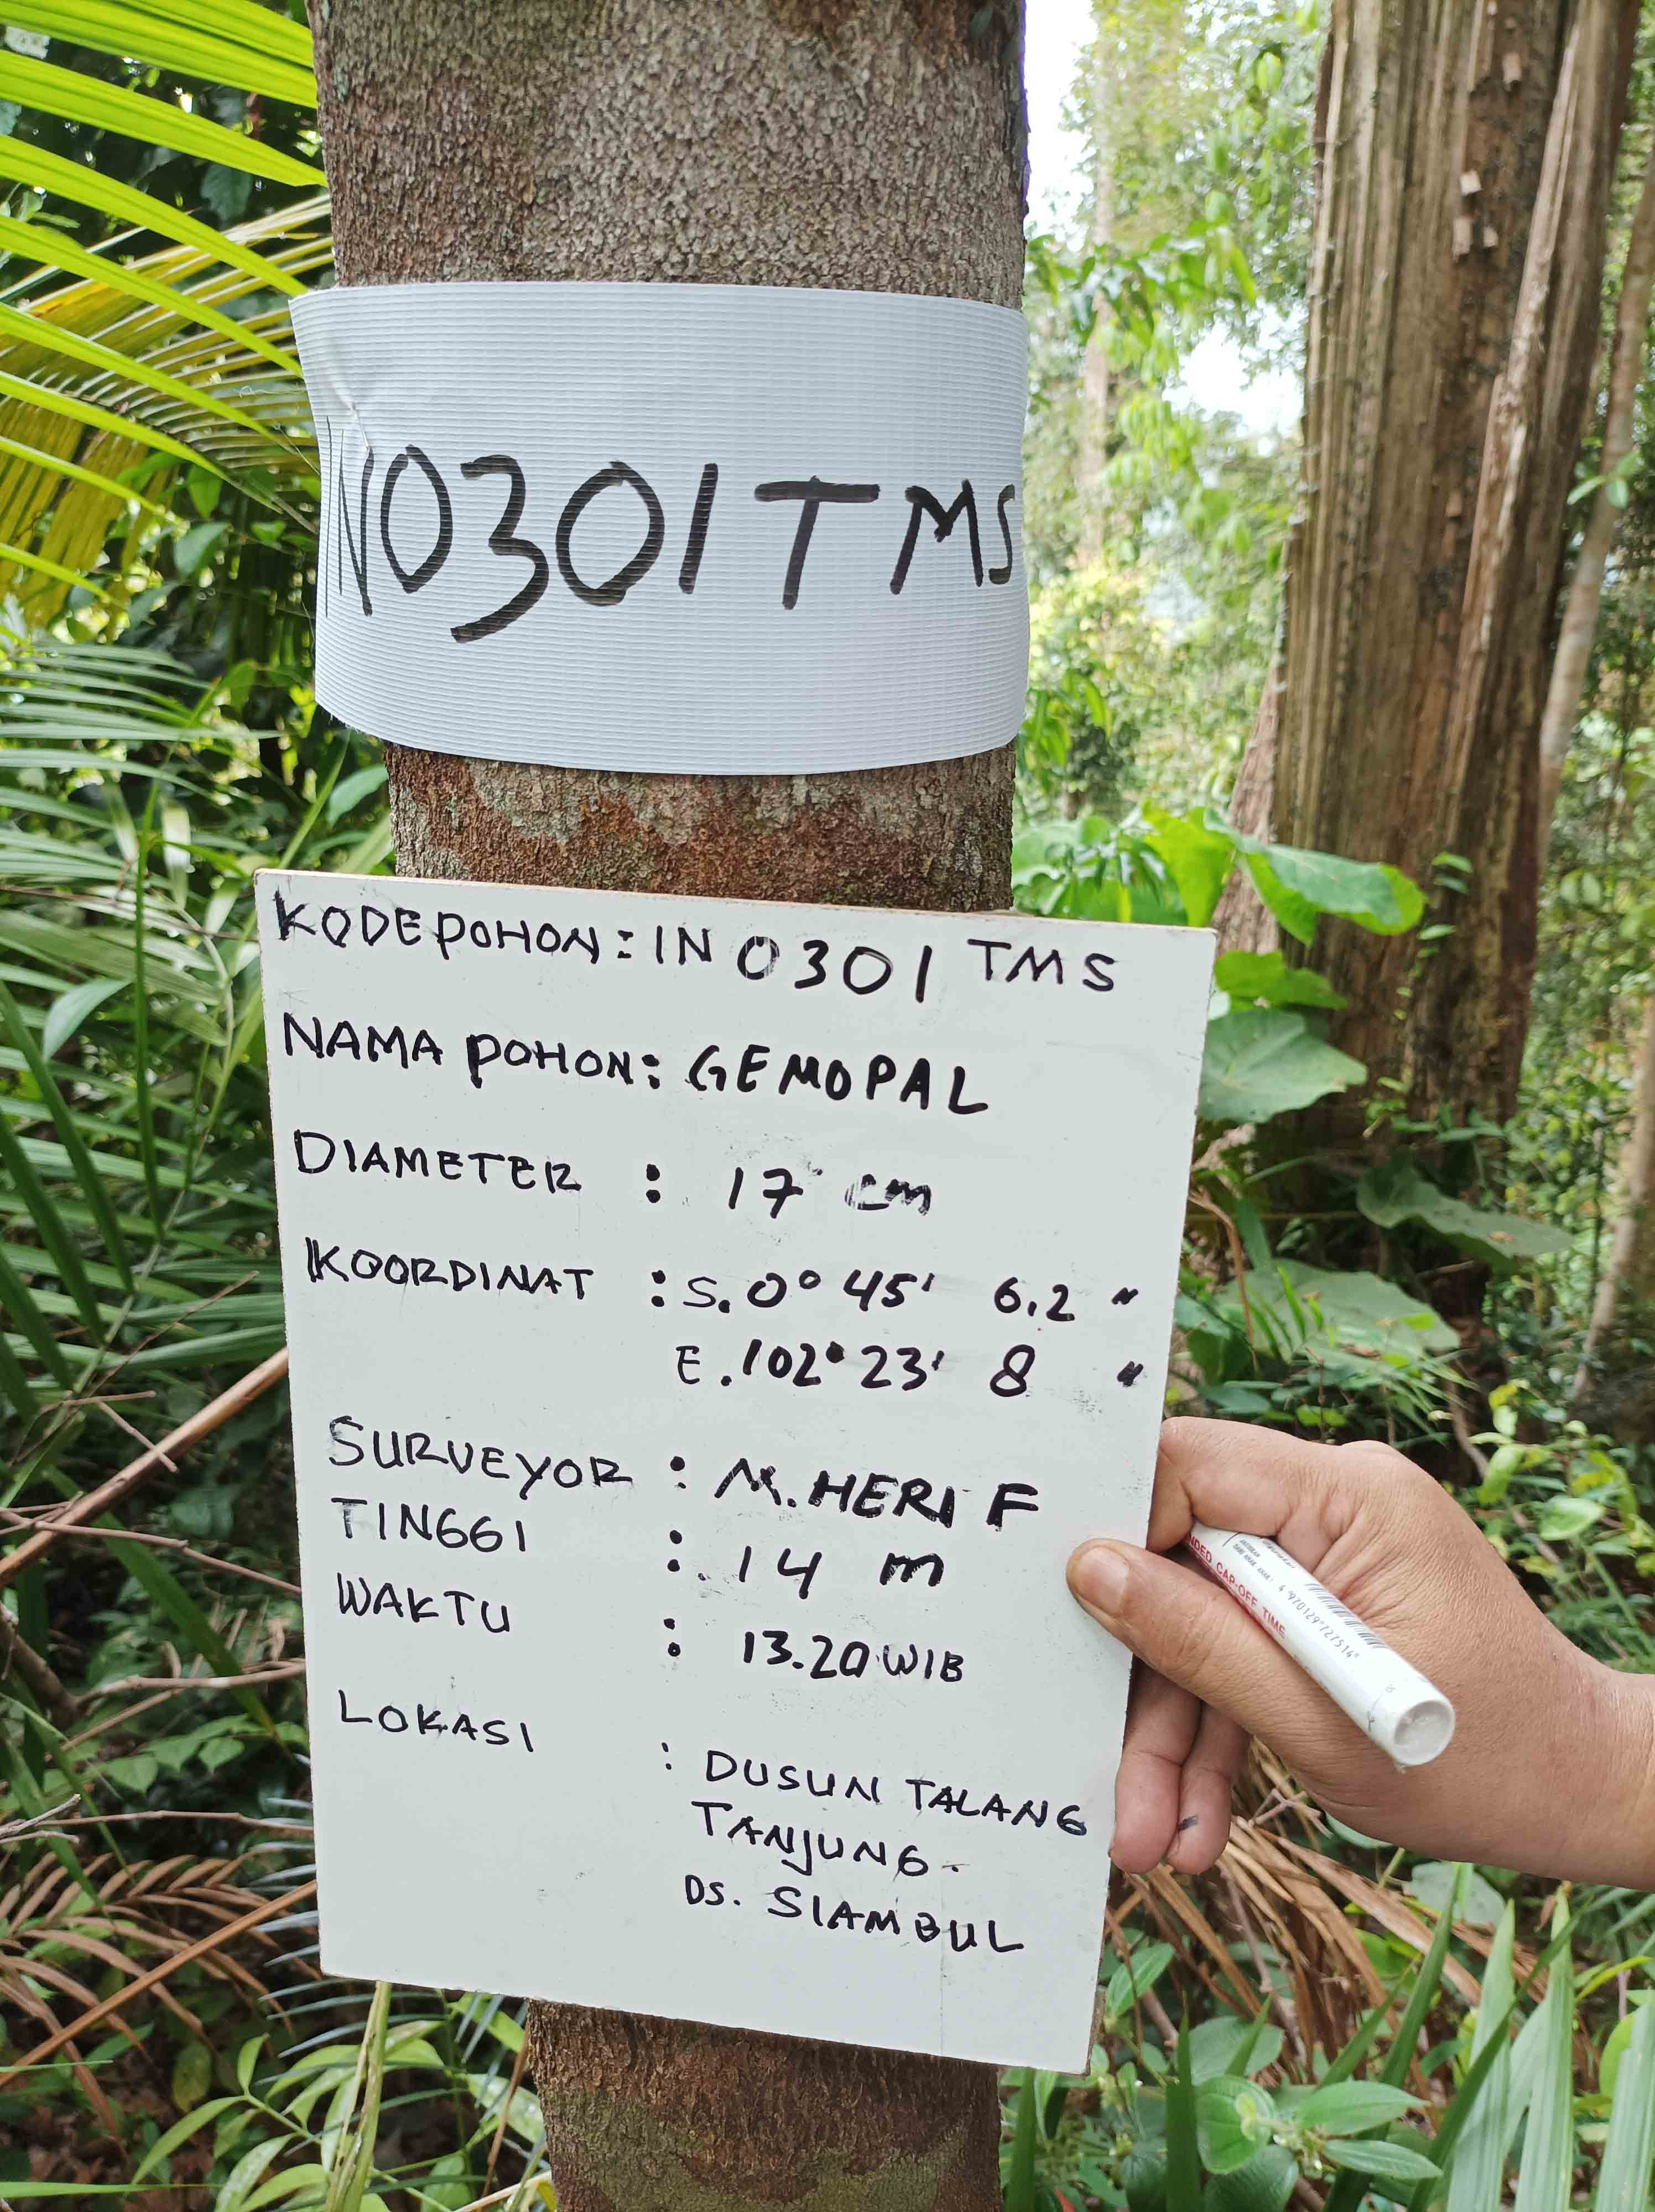 IN0301TMS
KODE POHON : IN 0301 TMS
NAMA POHON : GEMOPAL
DIAMETER : 17 cm
KOORDINAT : S. 0° 45' 6.2 "
E. 102° 23' 8 "
SURVEYOR : M. HERI F
TINGGI : 14 m
WAKTU : 13.20 WIB
LOKASI : DUSUN TALANG
TANJUNG.
DS. SIAMBUL
CAP-OFF TIME
4 970129 727514